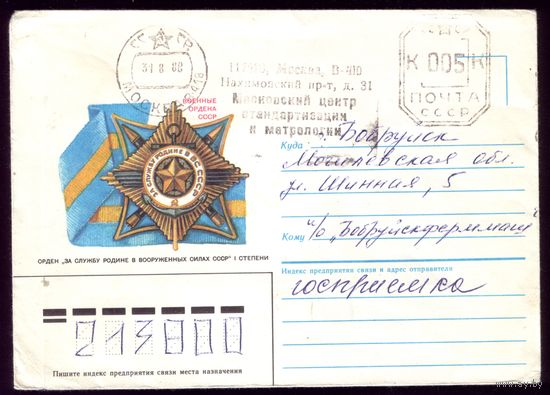 СССР
31 8 88
МОСКВА
117418, Москва, В-418
Нахимовский пр-т, д. 31
Московский центр
стандартизации
и метрологии
К 005 К
ПОЧТА
СССР
ВОЕННЫЕ
ОРДЕНА
СССР
ЗА СЛУЖБУ РОДИНЕ В ВС СССР
ОРДЕН „ЗА СЛУЖБУ РОДИНЕ В ВООРУЖЕННЫХ СИЛАХ СССР” I СТЕПЕНИ
г. Бобруйск
Куда
Могилевская обл.
ул. Шинная, 5
Кому п/о „Бобруйскферммаш"
Индекс предприятия связи и адрес отправителя
госприемка
213800
Пишите индекс предприятия связи места назначения
www.ay.by